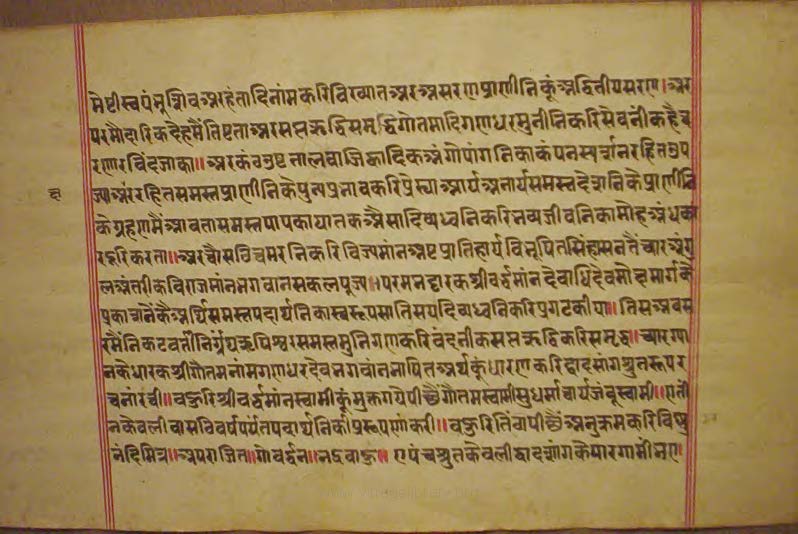 मेष्टीस्वपंनूशिवअरहंतादिनांमकरिविख्यातअरअसरणप्राणीनिकूंअद्वितीयसरण।अर
परमौदारिकदेहमैंतिष्टताअरसप्तऋद्धिसमृद्धिगोतमादिगणधरमुनीनिकरिसेवनींकहैच
रणारविंदजाका॥अरकंठउष्टतालवाजिह्वादिकअंगोपांगनिकाकंपनस्वर्चानरहितउप
ज्याअररहितसमस्तप्राणीनिकेपुन्यप्रभावकरिप्रेस्याआर्यअनार्यसमस्तदेशनिकेप्राणीनि
केग्रहणमैंआवतासमस्तपापकाघातकऔसादिव्यध्वनिकरिभव्यजीवनिकामोहअंधका
रदूरिकरता॥अरचौसठिचमरनिकरिविज्यमांनअष्टप्रातिहार्यविभूषितसिंहासनतैंच्यारअंगु
लअंतरीकविराजमांनभगवानसकलपूज्य॥परमभट्टारकश्रीवर्द्धमांनदेवाधिदेवमोक्षमार्गकै
प्रकाशनेंकैअर्थिसमस्तपदार्थनिकास्वरूपसातिसयदिव्यध्वनिकरिप्रगटकीया॥तिसअवस
रमैंनिकटवर्तीनिर्ग्रंथऋषिश्वरसमस्तमुनिगणकरिवंदनीकसप्तऋद्धिकरिसमृद्ध॥च्यारग्या
नकेधारकश्रीगौतमनांमगणधरदेवभगवांनभाषितअर्थकूंधारणकरिद्वादसांगश्रुतरूपर
चनांरची॥वहुरिश्रीवर्द्धमांनस्वामीकूंमुक्तगयेपीछैंगौतमस्वामीसुधर्माचार्यजंबूस्वामी॥एती
नकेवलीवासठिवर्षपर्यंतपदार्थनिकीप्ररूपणांकरी॥वहुरितिंनपीछैंअनुक्रमकरिविष्णु
नंदिमित्र॥अपराजित॥गोवर्द्धन॥भद्रवाहु॥एपंचश्रुतकेवलीद्वादशांगकेपारगामीभए।